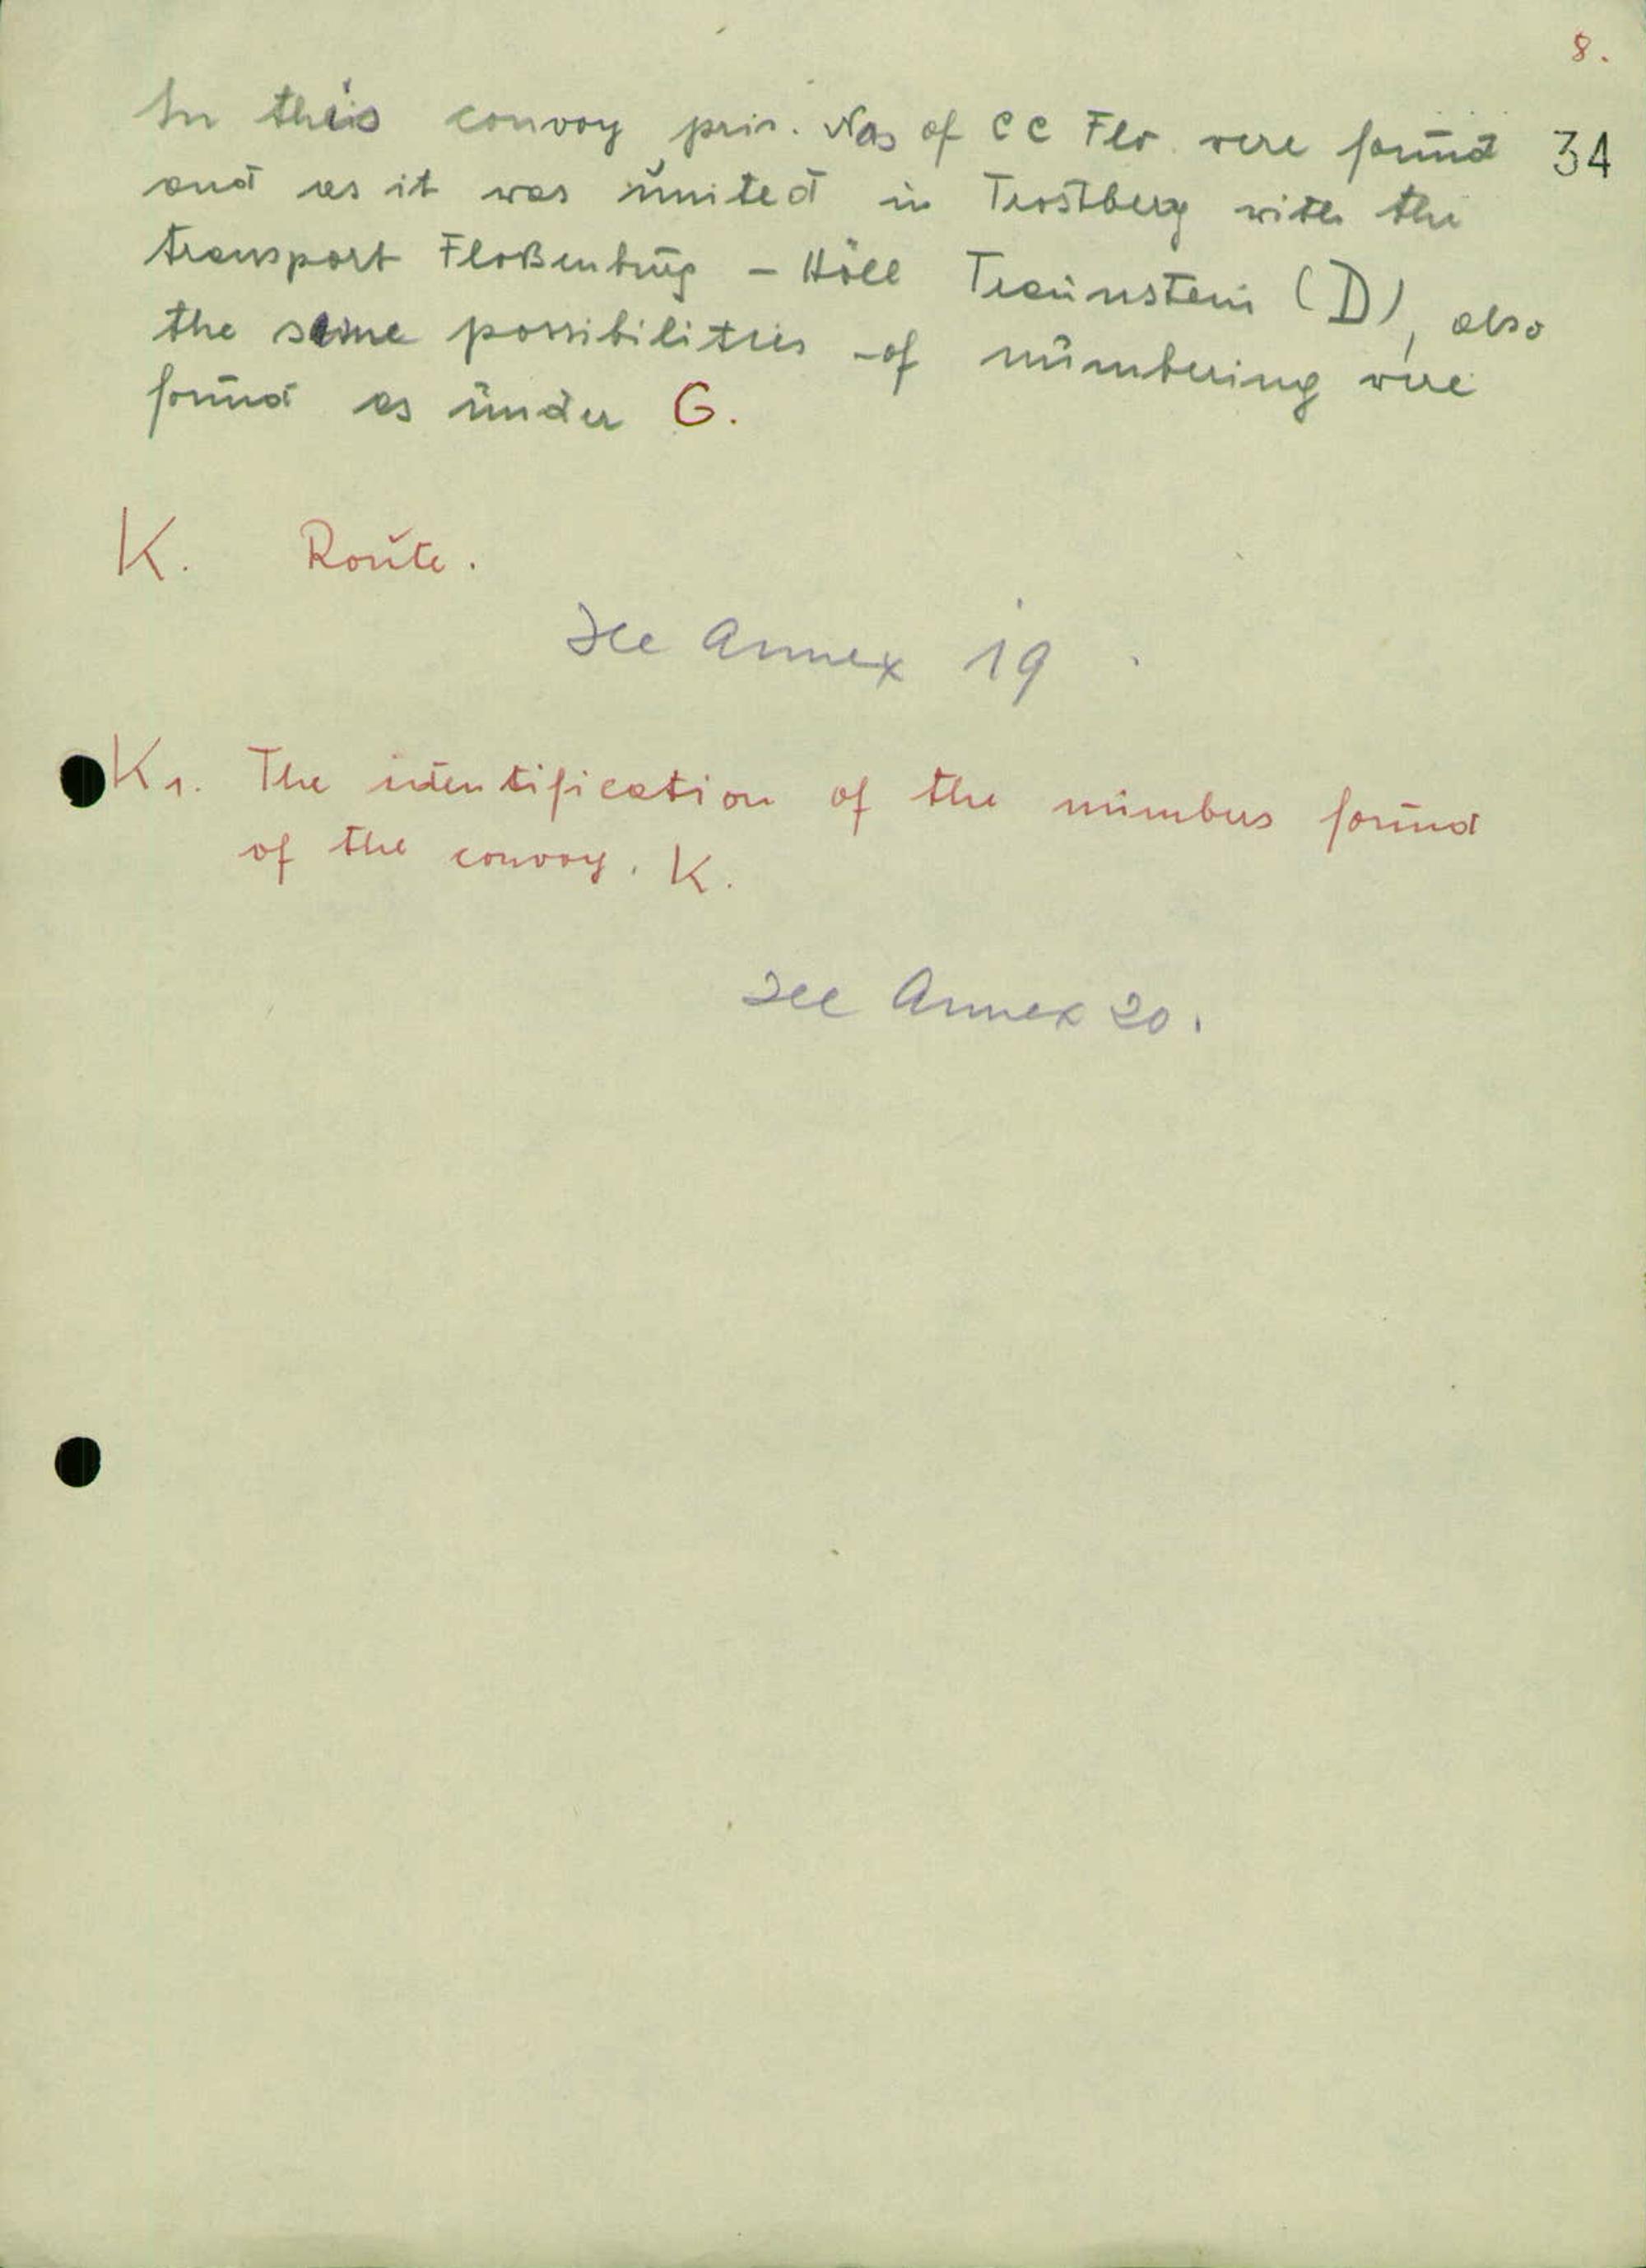 8.
In this convoy pris. Nos of CC Flo. were found 34
and as it was united in Trostberg with the
transport Floßenbürg – Höll Traunstein (D), also
the same possibilities of numbering were
found as under G.
K. Route.
See Annex 19.
K1. The identification of the numbers found
of the convoy. K.
See Annex 20.